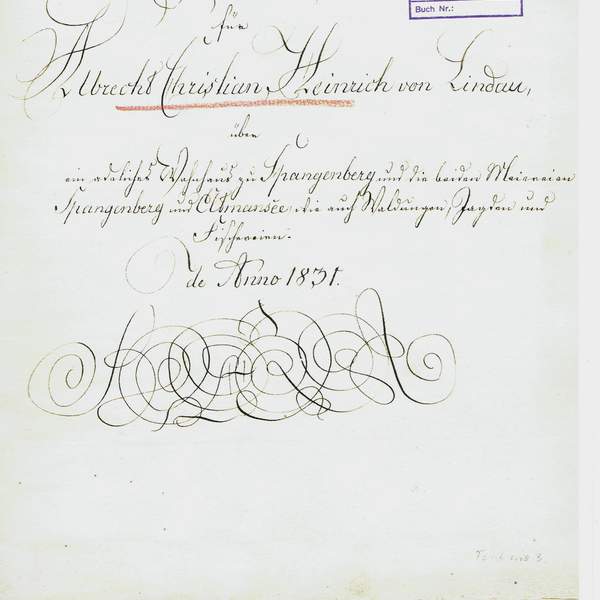 Buch Nr.:
für
Albrecht Christian Heinrich von Lindau,
über
ein adeliches Wohnhaus zu Spangenberg und die beiden Meiereien
Spangenberg und Elbmansee, wie auch Waldungen, Jagden und
Fischereien.
de Anno 1831.